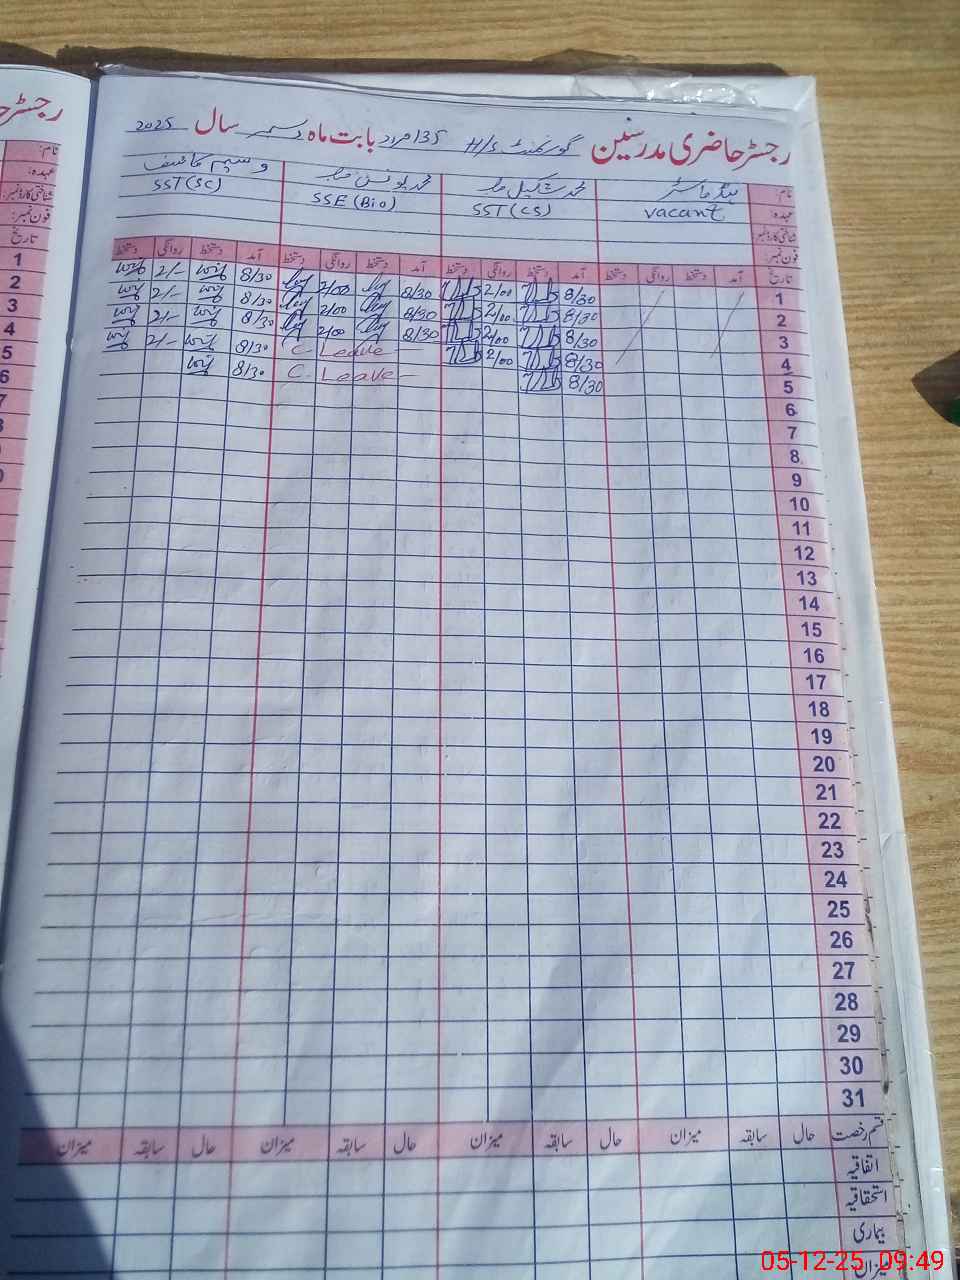 رجسٹر حاضری مدرسین گورنمنٹ H/S 135 مراد بابت ماہ دسمبر سال 2025
نام: ہیڈ ماسٹر محمد شکیل محمد یونس وسیم کاشف
عہدہ: vacant SST(CS) SSE (Bio) SST(SC)
شناختی کارڈ نمبر:
فون نمبر:
تاریخ آمد دستخط روانگی دستخط آمد دستخط روانگی دستخط آمد دستخط روانگی دستخط آمد دستخط روانگی دستخط
1 8/30 2/00 8/30 2/00 8/30 2/-
2 8/30 2/00 8/30 2/00 8/30 2/-
3 8/30 2/00 8/30 2/00 8/30 2/-
4 8/30 2/00 C. Leave 8/30 2/-
5 8/30 C. Leave 8/30
6
7
8
9
10
11
12
13
14
15
16
17
18
19
20
21
22
23
24
25
26
27
28
29
30
31
قسم رخصت حال سابقہ میزان حال سابقہ میزان حال سابقہ میزان حال سابقہ میزان
اتفاقیہ
استحقاقیہ
بیماری
میزان
رجسٹر
نام:
عہدہ:
شناختی کارڈ نمبر:
فون نمبر:
تاریخ
1
2
3
4
5
6
7
05-12-25 09:49